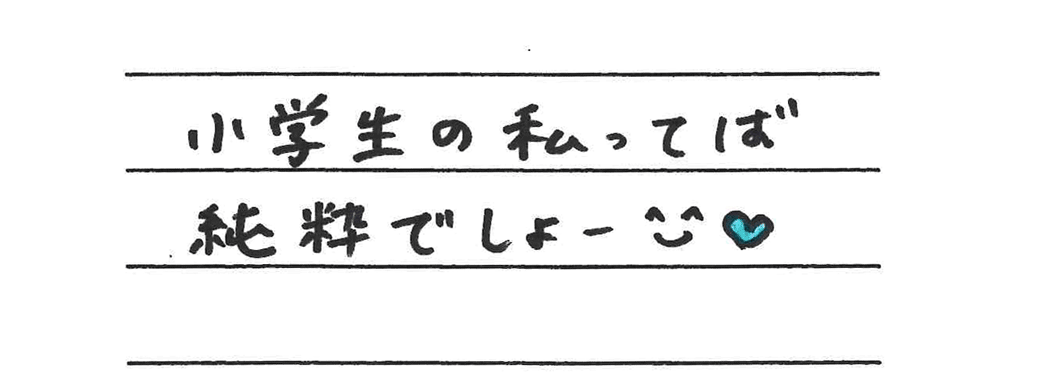 小学生の私ってば
純粋でしょー^^♥